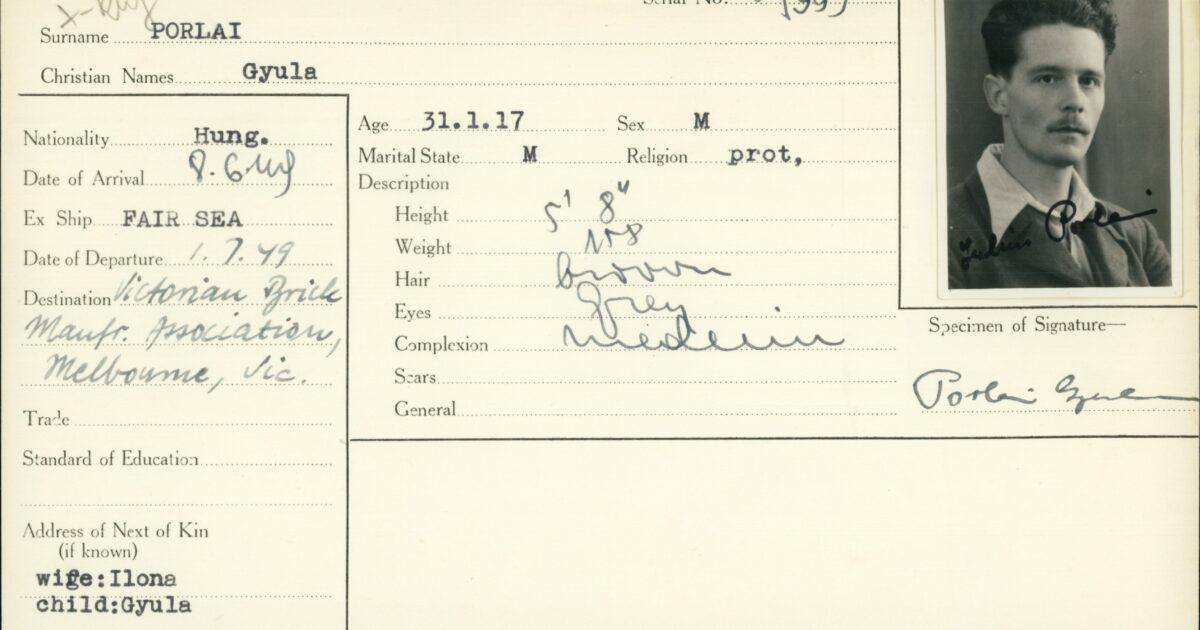 x-Ray
Serial No.
Surname PORLAI
Christian Names Gyula
Nationality Hung.
Date of Arrival 8.6.49
Ex Ship FAIR SEA
Date of Departure 1.7.49
Destination Victorian Brick
Manfr. Association,
Melbourne, Vic.
Trade
Standard of Education
Address of Next of Kin
(if known)
wife:Ilona
child:Gyula
Age 31.1.17 Sex M
Marital State M Religion prot,
Description
Height 5' 8"
Weight 158
Hair brown
Eyes Grey
Complexion medium
Scars
General
Julius Porlai
Specimen of Signature—
Porlai Gyula